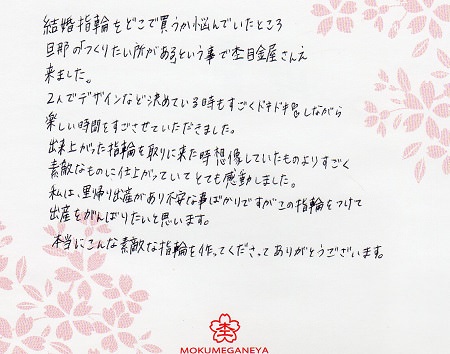 結婚指輪をどこで買うか悩んでいたところ
旦那の「つくりたい所がある」という事で杢目金屋さんえ
来ました。
2人でデザインなど決めている時もすごくドキドキしながら
楽しい時間をすごさせていただきました。
出来上がった指輪を取りに来た時想像していたものよりすごく
素敵なものに仕上がっていてとても感動しました。
私は、里帰り出産があり不安な事ばかりですがこの指輪をつけて
出産をがんばりたいと思います。
本当にこんな素敵な指輪を作ってくださってありがとうございます。
杢
MOKUMEGANEYA